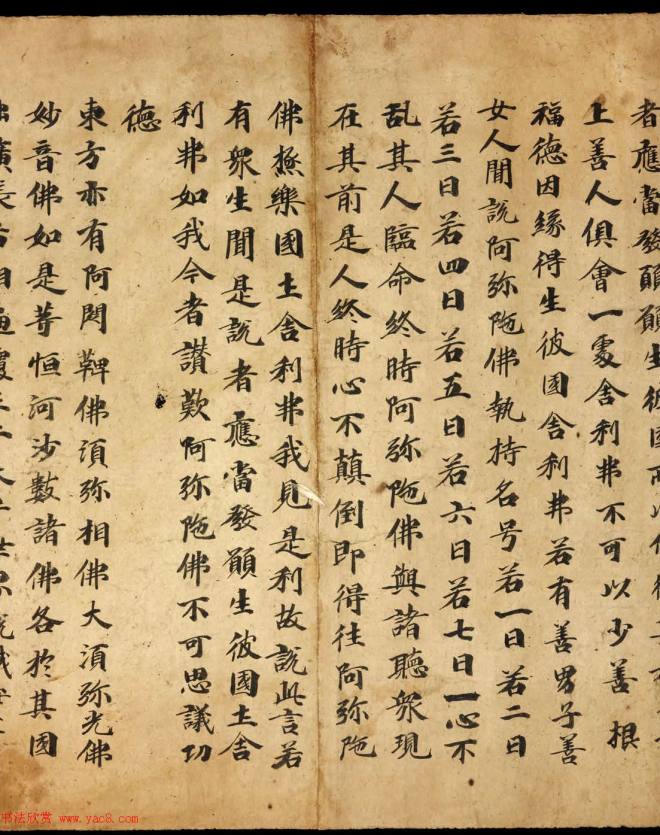 者應當發願願生彼國所以
上善人俱會一處舍利弗不可以少善根
福德因緣得生彼國舍利弗若有善男子善
女人聞說阿弥陁佛執持名号若一日若二日
若三日若四日若五日若六日若七日一心不
乱其人臨命終時阿弥陁佛與諸聽衆現
在其前是人終時心不顛倒即得往阿弥陁
佛極樂國土舍利弗我見是利故說此言若
有衆生聞是說者應當發願生彼國土舍
利弗如我今者讃歎阿弥陁佛不可思議功
德
東方亦有阿閦鞞佛須弥相佛大須弥光佛
妙音佛如是等恒河沙數諸佛各於其國
出廣長舌相遍覆三千大千世界說誠
书法欣赏 www.yac8.com